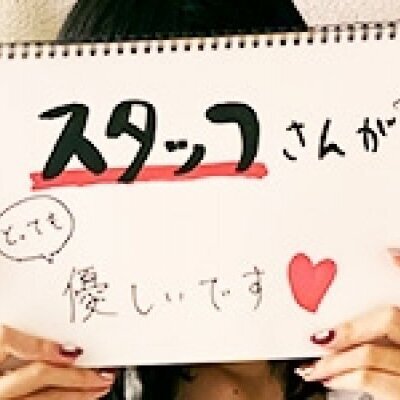 スタッフさんが
とっても
優しいです